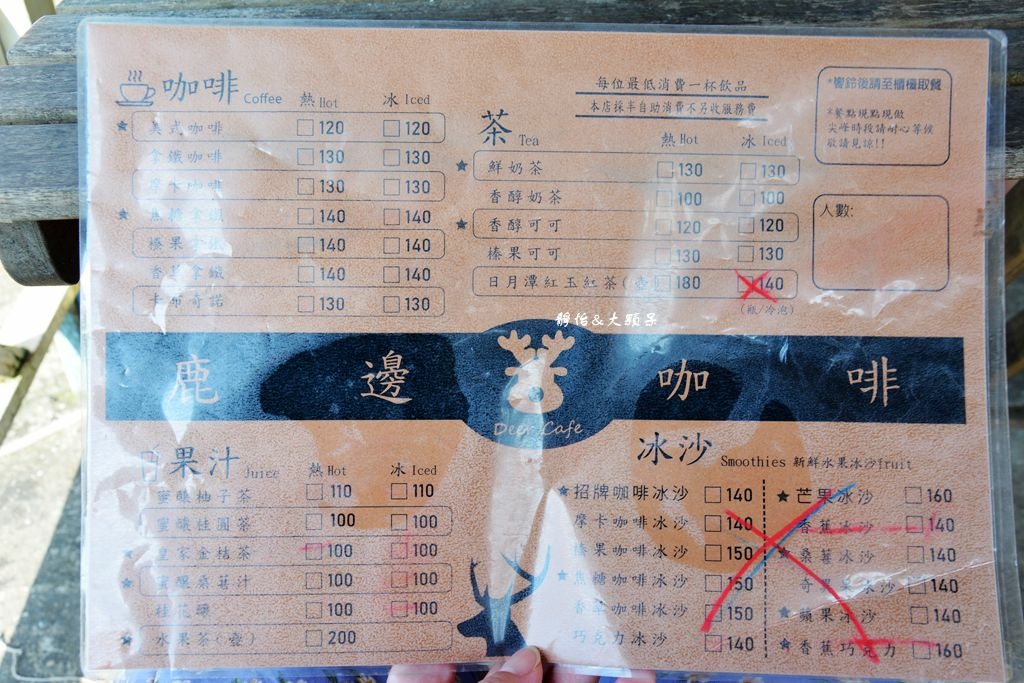 咖啡 Coffee 熱 Hot 冰 Iced
★ 美式咖啡 □120 □120
拿鐵咖啡 □130 □130
摩卡咖啡 □130 □130
★ 焦糖拿鐵 □140 □140
榛果拿鐵 □140 □140
香草拿鐵 □140 □140
卡布奇諾 □130 □130
每位最低消費一杯飲品
本店採半自助消費不另收服務費
茶 Tea 熱 Hot 冰 Iced
★ 鮮奶茶 □130 □130
香醇奶茶 □100 □100
★ 香醇可可 □120 □120
榛果可可 □130 □130
日月潭紅玉紅茶(壺) □180 □140
(瓶/冷泡)
*響鈴後請至櫃檯取餐
*餐點現點現做
尖峰時段請耐心等候
敬請見諒!!
人數:
靜怡&大顆呆
鹿邊咖啡
Deer Cafe
果汁 Juice 熱 Hot 冰 Iced
蜜釀柚子茶 □110 □110
蜜釀桂圓茶 □100 □100
★ 皇家金桔茶 □100 □100
★ 蜜釀桑葚汁 □100 □100
桂花釀 □100 □100
★ 水果茶(壺) □200
冰沙 Smoothies 新鮮水果冰沙fruit
★招牌咖啡冰沙 □140
摩卡咖啡冰沙 □140
榛果咖啡冰沙 □150
★焦糖咖啡冰沙 □150
香草咖啡冰沙 □150
巧克力冰沙 □140
★芒果冰沙 □160
香蕉冰沙 □140
★桑葚冰沙 □140
奇異果冰沙 □140
★蘋果冰沙 □140
★香蕉巧克力 □160